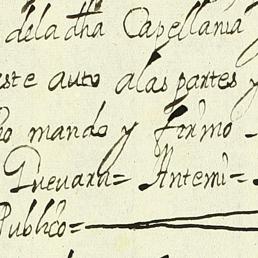 dela dha Capellania y
este auto alas partes y
mando y firmo
Guevara= Antemi=
Publico=